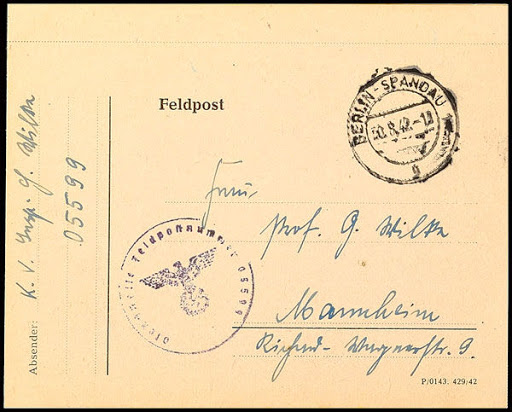 Feldpost
BERLIN-SPANDAU
.8.42.-1
g
Prof. G. Wilke
Mannheim
Richard-Wagnerstr. 9.
Dienststelle Feldpostnummer 05599
Absender: K. V. Insp. G. Wilke
05599
P/0143. 429/42